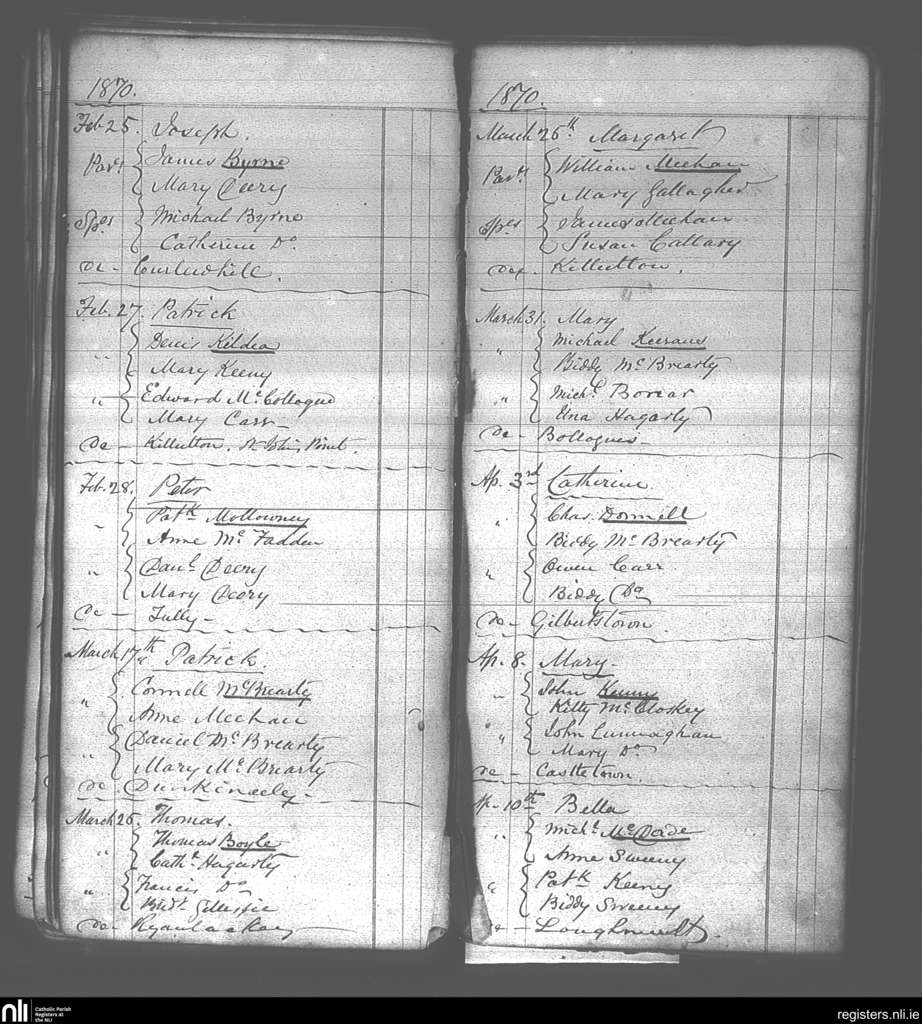 1870.
Feb. 25. Joseph.
Par.ts James Byrne
Mary Deery
Sp.rs Michael Byrne
Catherine Do.
de - Curlewhill.
Feb. 27. Patrick
Denis Kildea
Mary Keeny
" Edward McCollogue
Mary Carr -
De - Killulton. St. John's Point.
Feb. 28. Peter
" Patk Mollowney
Anne McFadden
" Danl Deery
Mary Deery
De - Tully -
March 17th Patrick.
" Connell McBrearty
Anne Meehan
" Daniel McBrearty
Mary McBriarty
de - Dunkineely -
March 26. Thomas.
" Thomas Boyle
Cathe Hagarty
" Francis Do
Bidt Gillespie
de -
1870.
March 26th Margaret
Par.ts William Meehan
Mary Gallagher
Sp.rs James Meehan
Susan Callary
Killulton.
March 31. Mary
" Michael Keeranes
Biddy McBrearty
" Michl
Una Hagarty
De - Bollogues -
Ap. 3rd Catherine.
" Chas. Donnell
Biddy McBrearty
" Owen Carr
Biddy Do
de - Gilbertstown.
Ap. 8. Mary -
" John Kenny
Kitty McCloskey
" John Cunnaghan
Mary Do
de - Castletown.
Ap. 10th Bella
" Michl McDade
Anne Sweeny
" Patk Keeny
Biddy Sweeny
de - Loughmult.
nli
Catholic Parish
Registers at
the NLI
registers.nli.ie